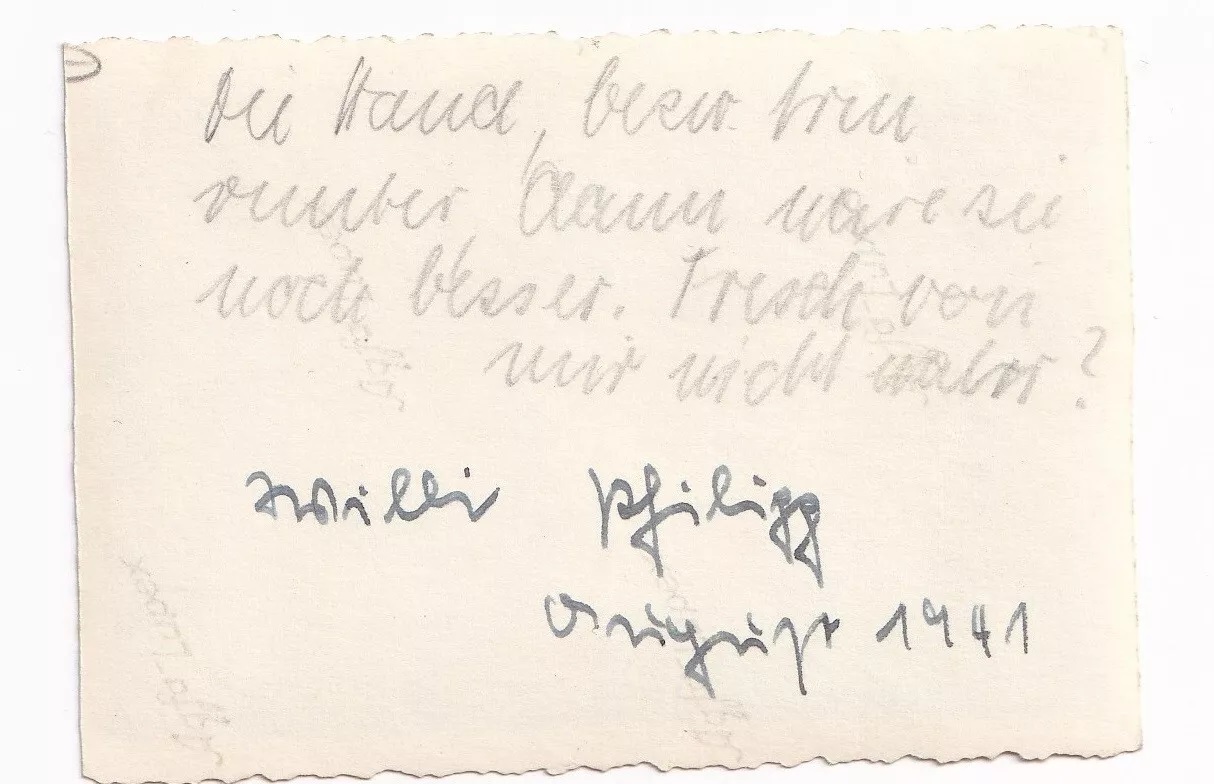 Die Hand, besser. Arm
runter, dann wäre sie
noch besser. Fresch von
mir nicht wahr?
Willi Philipp
August 1941